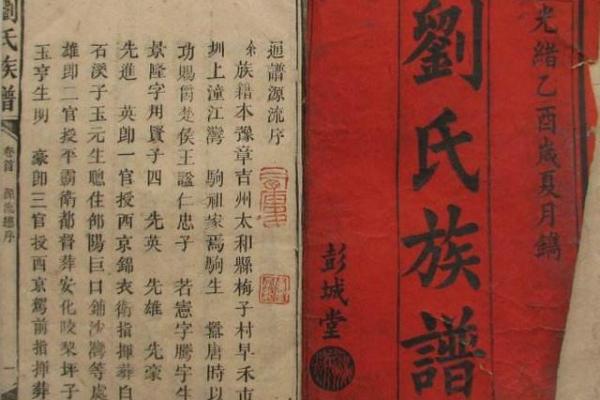 光緒乙酉歲夏月鐫
劉氏族譜
彭城堂
迴譜源流序
余族籍本豫章吉州太和縣梅子村早禾市
圳上潼江灣 駒祖家焉駒生 嚚唐時以
功賜爵楚侯王諡仁忠子 若憲字騰宇生
景隆字用賢子四 先英 先雄 先豪
先進 英卽一官授西京錦衣衛指揮葬白
石溪子玉元生聰住邵陽巨口鋪沙灣等處
雄卽二官授平霸衛都督葬安化陵棃坪子
玉亨生明 豪卽三官授西京駕前指揮葬
劉氏族譜
卷首
一